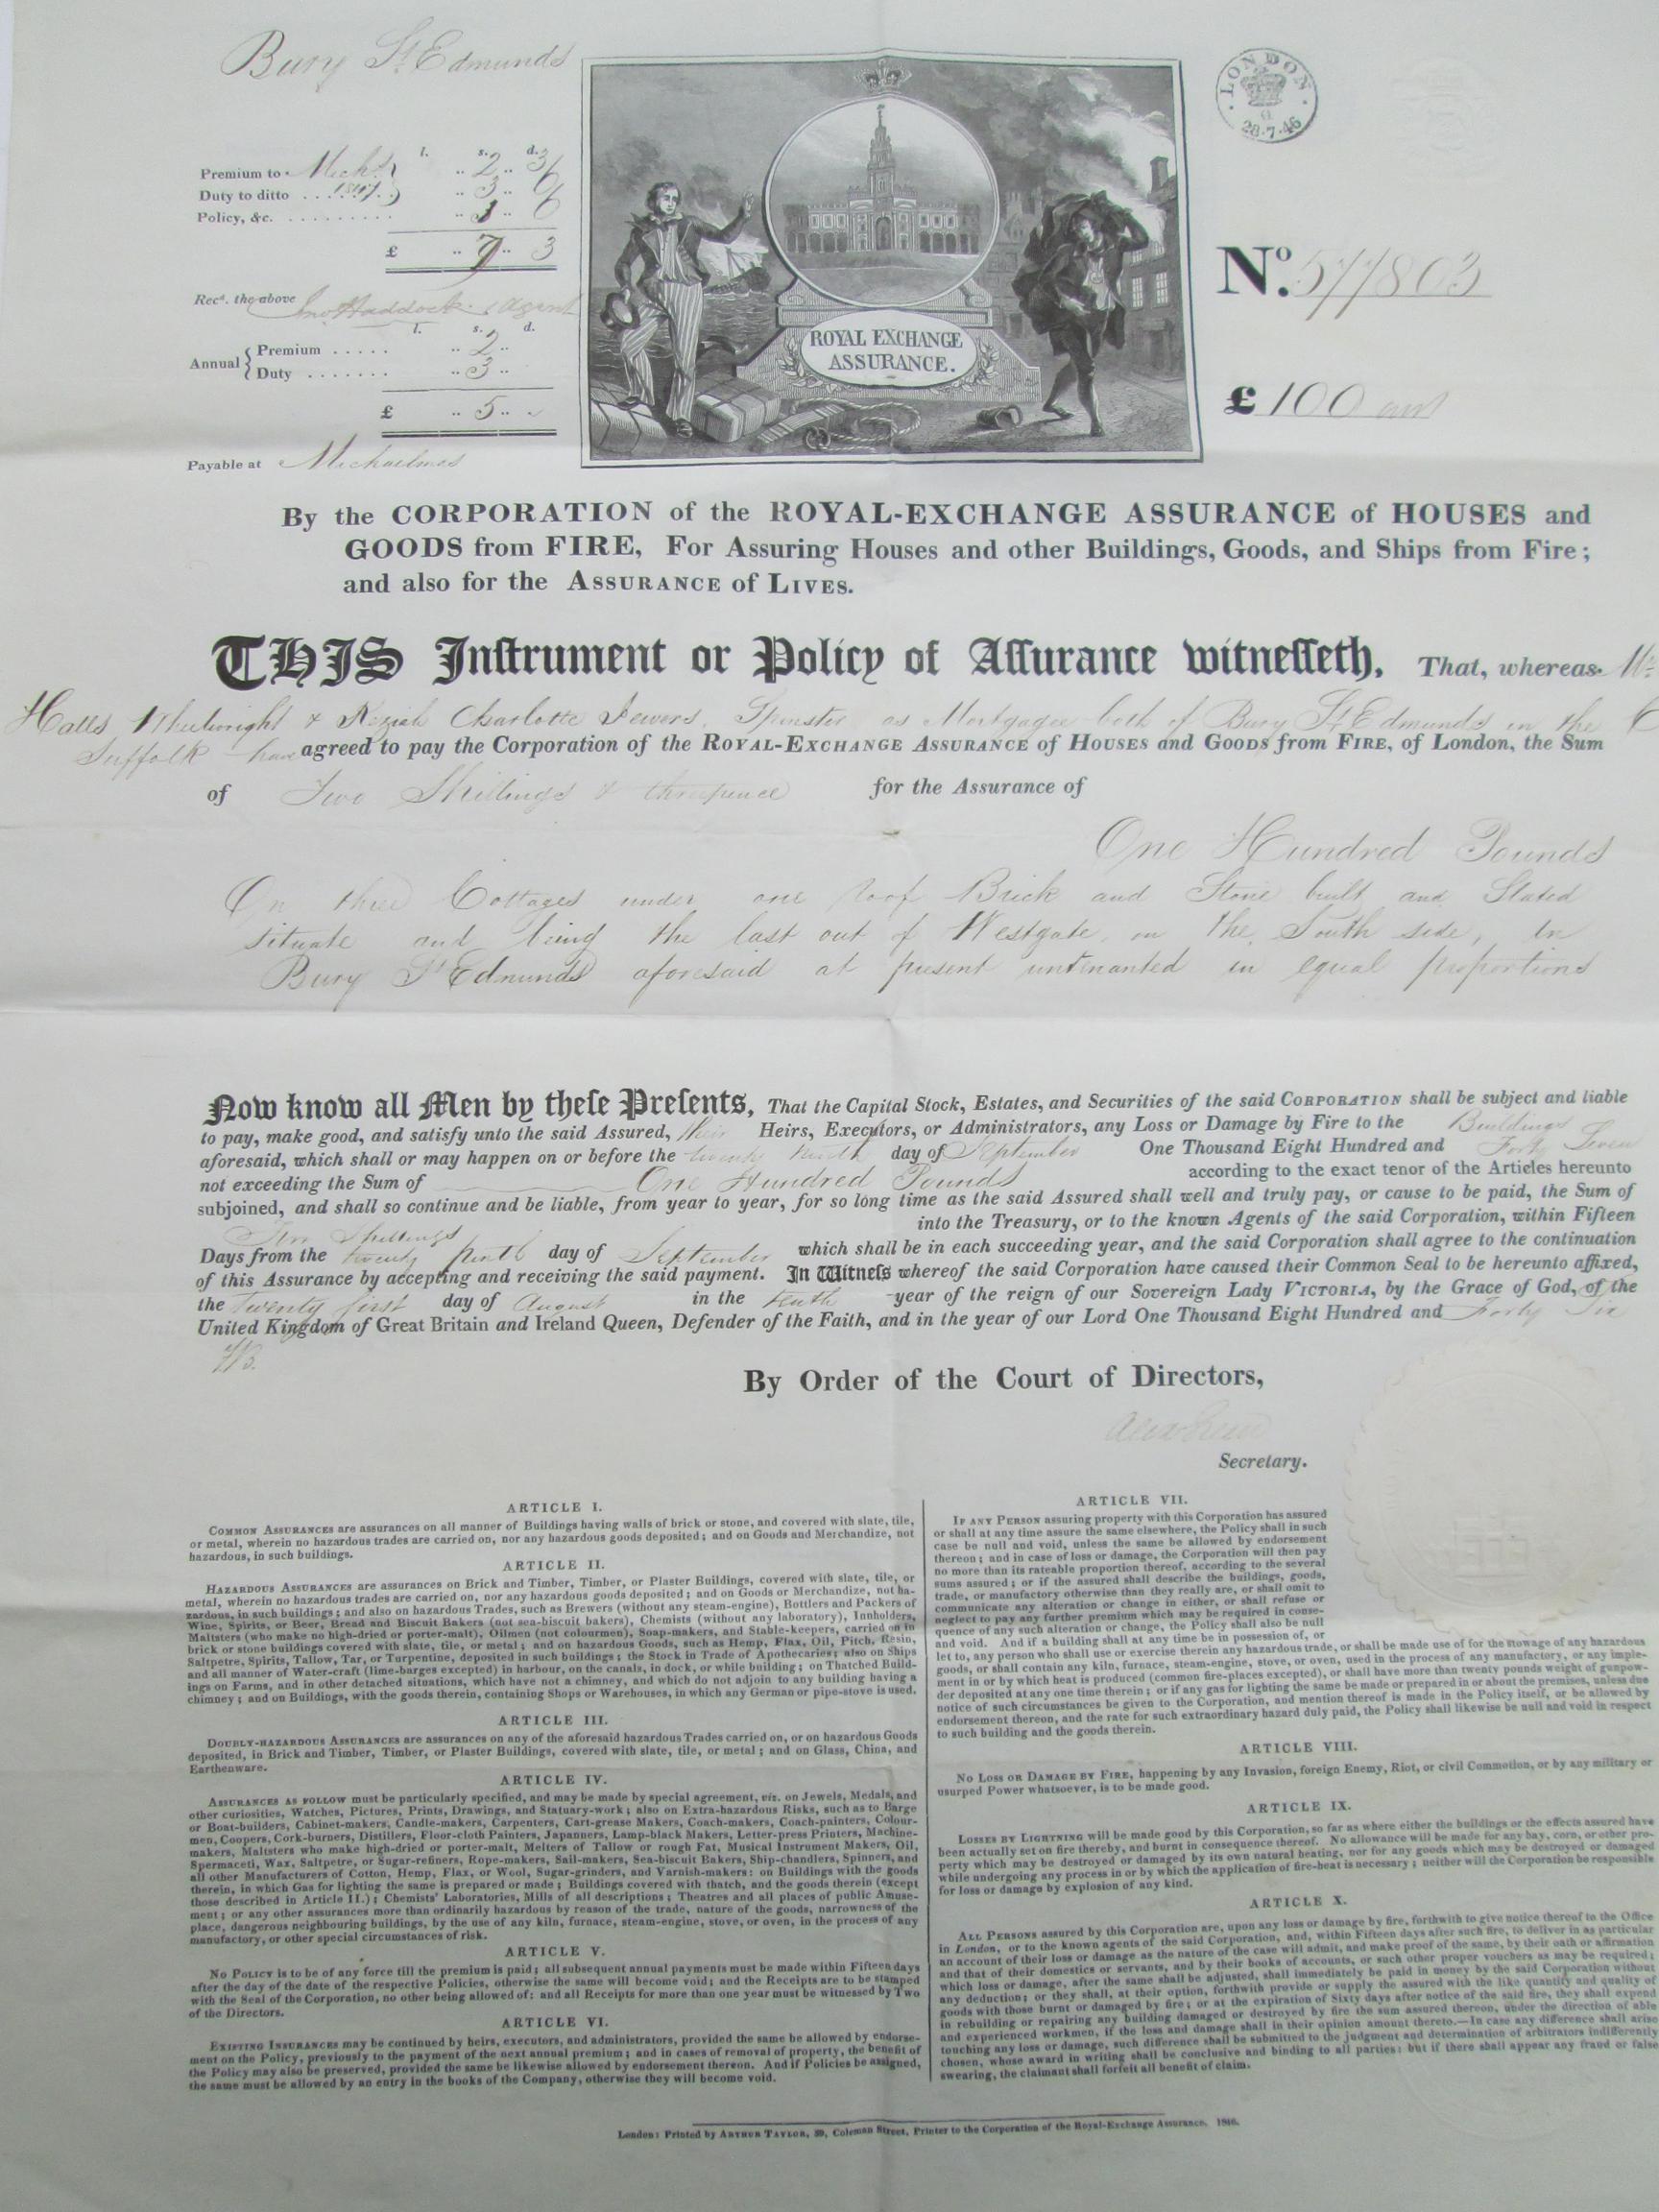 Bury St Edmunds
LONDON
28.7.46
l. s. d.
Premium to Mich.s .. 2 .. 3
Duty to ditto .... 1847 .. 3 .. 6
Policy, &c. .......... 1 .. 6
£ .. 7 .. 3
Recd. the above Jno Haddock Agent
l. s. d.
Annual { Premium ..... .. 2 ..
Duty ....... .. 3 ..
£ .. 5 ..
Payable at Michaelmas
ROYAL EXCHANGE
ASSURANCE.
No. 577803
£ 100
By the CORPORATION of the ROYAL-EXCHANGE ASSURANCE of HOUSES and
GOODS from FIRE, For Assuring Houses and other Buildings, Goods, and Ships from Fire;
and also for the ASSURANCE of LIVES.
THIS Inſtrument or Policy of Aſſurance witneſſeth, That, whereas
Halls, Wheelwright & Keziah Charlotte Jewers, Spinster as Mortgagee both of Bury St Edmunds in the
Suffolk have agreed to pay the Corporation of the ROYAL-EXCHANGE ASSURANCE of HOUSES and GOODS from FIRE, of London, the Sum
of Two Shillings & threepence for the Assurance of
One Hundred Pounds
On three Cottages under one roof Brick and Stone built and Slated
situate and being the last out of Westgate, on the South side, in
Bury St Edmunds aforesaid at present untenanted in equal proportions
Now know all Men by theſe Preſents, That the Capital Stock, Estates, and Securities of the said CORPORATION shall be subject and liable
to pay, make good, and satisfy unto the said Assured, their Heirs, Executors, or Administrators, any Loss or Damage by Fire to the Buildings
aforesaid, which shall or may happen on or before the twenty ninth day of September One Thousand Eight Hundred and Forty Seven
not exceeding the Sum of One Hundred Pounds according to the exact tenor of the Articles hereunto
subjoined, and shall so continue and be liable, from year to year, for so long time as the said Assured shall well and truly pay, or cause to be paid, the Sum of
Two Shillings into the Treasury, or to the known Agents of the said Corporation, within Fifteen
Days from the twenty ninth day of September which shall be in each succeeding year, and the said Corporation shall agree to the continuation
of this Assurance by accepting and receiving the said payment. In Witneſs whereof the said Corporation have caused their Common Seal to be hereunto affixed,
the twenty first day of August in the tenth year of the reign of our Sovereign Lady VICTORIA, by the Grace of God, of the
United Kingdom of Great Britain and Ireland Queen, Defender of the Faith, and in the year of our Lord One Thousand Eight Hundred and Forty Six
By Order of the Court of Directors,
Secretary.
ARTICLE I.
COMMON ASSURANCES are assurances on all manner of Buildings having walls of brick or stone, and covered with slate, tile,
or metal, wherein no hazardous trades are carried on, nor any hazardous goods deposited; and on Goods and Merchandize, not
hazardous, in such buildings.
ARTICLE II.
HAZARDOUS ASSURANCES are assurances on Brick and Timber, Timber, or Plaster Buildings, covered with slate, tile, or
metal, wherein no hazardous trades are carried on, nor any hazardous goods deposited; and on Goods or Merchandize, not ha-
zardous, in such buildings; and also on hazardous Trades, such as Brewers (without any steam-engine), Bottlers and Packers of
Wine, Spirits, or Beer, Bread and Biscuit Bakers (not sea-biscuit bakers), Chemists (without any laboratory), Innholders,
Maltsters (who make no high-dried or porter-malt), Oilmen (not colourmen), Soap-makers, and Stable-keepers, carried on in
brick or stone buildings covered with slate, tile, or metal; and on hazardous Goods, such as Hemp, Flax, Oil, Pitch, Resin,
Saltpetre, Spirits, Tallow, Tar, or Turpentine, deposited in such buildings; the Stock in Trade of Apothecaries; also on Ships
and all manner of Water-craft (lime-barges excepted) in harbour, on the canals, in dock, or while building; on Thatched Build-
ings on Farms, and in other detached situations, which have not a chimney, and which do not adjoin to any building having a
chimney; and on Buildings, with the goods therein, containing Shops or Warehouses, in which any German or pipe-stove is used.
ARTICLE III.
DOUBLY-HAZARDOUS ASSURANCES are assurances on any of the aforesaid hazardous Trades carried on, or on hazardous Goods
deposited, in Brick and Timber, Timber, or Plaster Buildings, covered with slate, tile, or metal; and on Glass, China, and
Earthenware.
ARTICLE IV.
ASSURANCES AS FOLLOW must be particularly specified, and may be made by special agreement, viz. on Jewels, Medals, and
other curiosities, Watches, Pictures, Prints, Drawings, and Statuary-work; also on Extra-hazardous Risks, such as to Barge
or Boat-builders, Cabinet-makers, Candle-makers, Carpenters, Cart-grease Makers, Coach-makers, Coach-painters, Colour-
men, Coopers, Cork-burners, Distillers, Floor-cloth Painters, Japanners, Lamp-black Makers, Letter-press Printers, Machine-
makers, Maltsters who make high-dried or porter-malt, Melters of Tallow or rough Fat, Musical Instrument Makers, Oil,
Spermaceti, Wax, Saltpetre, or Sugar-refiners, Rope-makers, Sail-makers, Sea-biscuit Bakers, Ship-chandlers, Spinners, and
all other Manufacturers of Cotton, Hemp, Flax, or Wool, Sugar-grinders, and Varnish-makers: on Buildings with the goods
therein, in which Gas for lighting the same is prepared or made; Buildings covered with thatch, and the goods therein (except
those described in Article II.); Chemists' Laboratories, Mills of all descriptions; Theatres and all places of public Amuse-
ment; or any other assurances more than ordinarily hazardous by reason of the trade, nature of the goods, narrowness of the
place, dangerous neighbouring buildings, by the use of any kiln, furnace, steam-engine, stove, or oven, in the process of any
manufactory, or other special circumstances of risk.
ARTICLE V.
NO POLICY is to be of any force till the premium is paid; all subsequent annual payments must be made within Fifteen days
after the day of the date of the respective Policies, otherwise the same will become void; and the Receipts are to be stamped
with the Seal of the Corporation, no other being allowed of: and all Receipts for more than one year must be witnessed by Two
of the Directors.
ARTICLE VI.
EXISTING INSURANCES may be continued by heirs, executors, and administrators, provided the same be allowed by endorse-
ment on the Policy, previously to the payment of the next annual premium; and in cases of removal of property, the benefit of
the Policy may also be preserved, provided the same be likewise allowed by endorsement thereon. And if Policies be assigned,
the same must be allowed by an entry in the books of the Company, otherwise they will become void.
ARTICLE VII.
IF ANY PERSON assuring property with this Corporation has assured
or shall at any time assure the same elsewhere, the Policy shall in such
case be null and void, unless the same be allowed by endorsement
thereon; and in case of loss or damage, the Corporation will then pay
no more than its rateable proportion thereof, according to the several
sums assured; or if the assured shall describe the buildings, goods,
trade, or manufactory otherwise than they really are, or shall omit to
communicate any alteration or change in either, or shall refuse or
neglect to pay any further premium which may be required in conse-
quence of any such alteration or change, the Policy shall also be null
and void. And if a building shall at any time be in possession of, or
let to, any person who shall use or exercise therein any hazardous trade, or shall be made use of for the stowage of any hazardous
goods, or shall contain any kiln, furnace, steam-engine, stove, or oven, used in the process of any manufactory, or any imple-
ment in or by which heat is produced (common fire-places excepted), or shall have more than twenty pounds weight of gunpow-
der deposited at any one time therein; or if any gas for lighting the same be made or prepared in or about the premises, unless due
notice of such circumstances be given to the Corporation, and mention thereof is made in the Policy itself, or be allowed by
endorsement thereon, and the rate for such extraordinary hazard duly paid, the Policy shall likewise be null and void in respect
to such building and the goods therein.
ARTICLE VIII.
NO LOSS OR DAMAGE BY FIRE, happening by any Invasion, foreign Enemy, Riot, or civil Commotion, or by any military or
usurped Power whatsoever, is to be made good.
ARTICLE IX.
LOSSES BY LIGHTNING will be made good by this Corporation, so far as where either the buildings or the effects assured have
been actually set on fire thereby, and burnt in consequence thereof. No allowance will be made for any hay, corn, or other pro-
perty which may be destroyed or damaged by its own natural heating, nor for any goods which may be destroyed or damaged
while undergoing any process in or by which the application of fire-heat is necessary; neither will the Corporation be responsible
for loss or damage by explosion of any kind.
ARTICLE X.
ALL PERSONS assured by this Corporation are, upon any loss or damage by fire, forthwith to give notice thereof to the Office
in London, or to the known agents of the said Corporation, and, within Fifteen days after such fire, to deliver in as particular
an account of their loss or damage as the nature of the case will admit, and make proof of the same, by their oath or affirmation
and that of their domestics or servants, and by their books of accounts, or such other proper vouchers as may be required;
which loss or damage, after the same shall be adjusted, shall immediately be paid in money by the said Corporation without
any deduction; or they shall, at their option, forthwith provide or supply the assured with the like quantity and quality of
goods with those burnt or damaged by fire; or at the expiration of Sixty days after notice of the said fire, they shall expend
in rebuilding or repairing any building damaged or destroyed by fire the sum assured thereon, under the direction of able
and experienced workmen, if the loss and damage shall in their opinion amount thereto.—In case any difference shall arise
touching any loss or damage, such difference shall be submitted to the judgment and determination of arbitrators indifferently
chosen, whose award in writing shall be conclusive and binding to all parties: but if there shall appear any fraud or false
swearing, the claimant shall forfeit all benefit of claim.
London: Printed by ARTHUR TAYLOR, 39, Coleman Street, Printer to the Corporation of the Royal-Exchange Assurance. 1846.